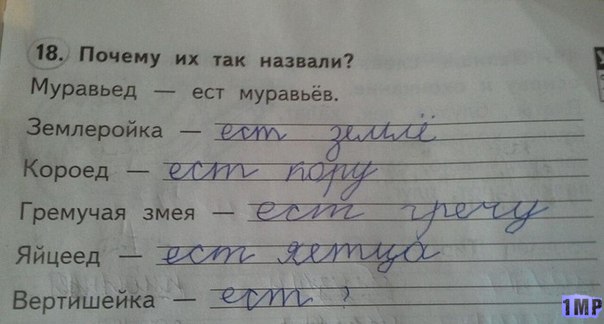 18. Почему их так назвали?
Муравьед — ест муравьёв.
Землеройка — ест землё
Короед — ест кору
Гремучая змея — ест гречу
Яйцеед — ест яетца
Вертишейка — ест ?
1МР